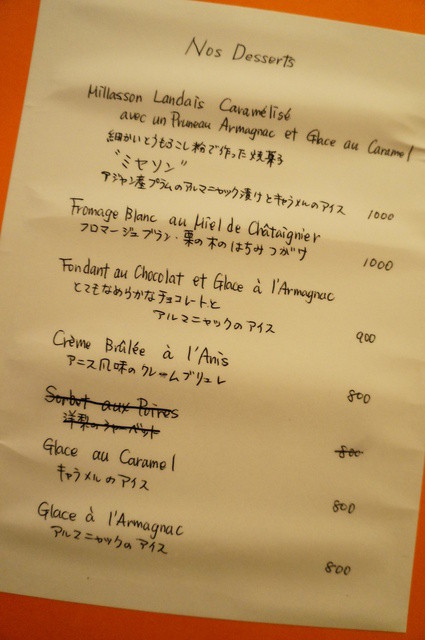 Nos Desserts
Millasson Landais Caramélisé
avec un Pruneau Armagnac et Glace au Caramel
細かいとうもろこし粉で作った焼菓子
"ミヤソン"
アジャン産プラムのアルマニャック漬けとキャラメルのアイス 1000
Fromage Blanc au Miel de Châtaignier
フロマージュブラン・栗の木のはちみつがけ 1000
Fondant au Chocolat et Glace à l'Armagnac
とてもなめらかなチョコレートと
アルマニャックのアイス 900
Crème Brûlée à l'Anis
アニス風味のクレームブリュレ 800
Sorbet aux Poires
洋梨のシャーベット 800
Glace au Caramel
キャラメルのアイス 800
Glace à l'Armagnac
アルマニャックのアイス 800